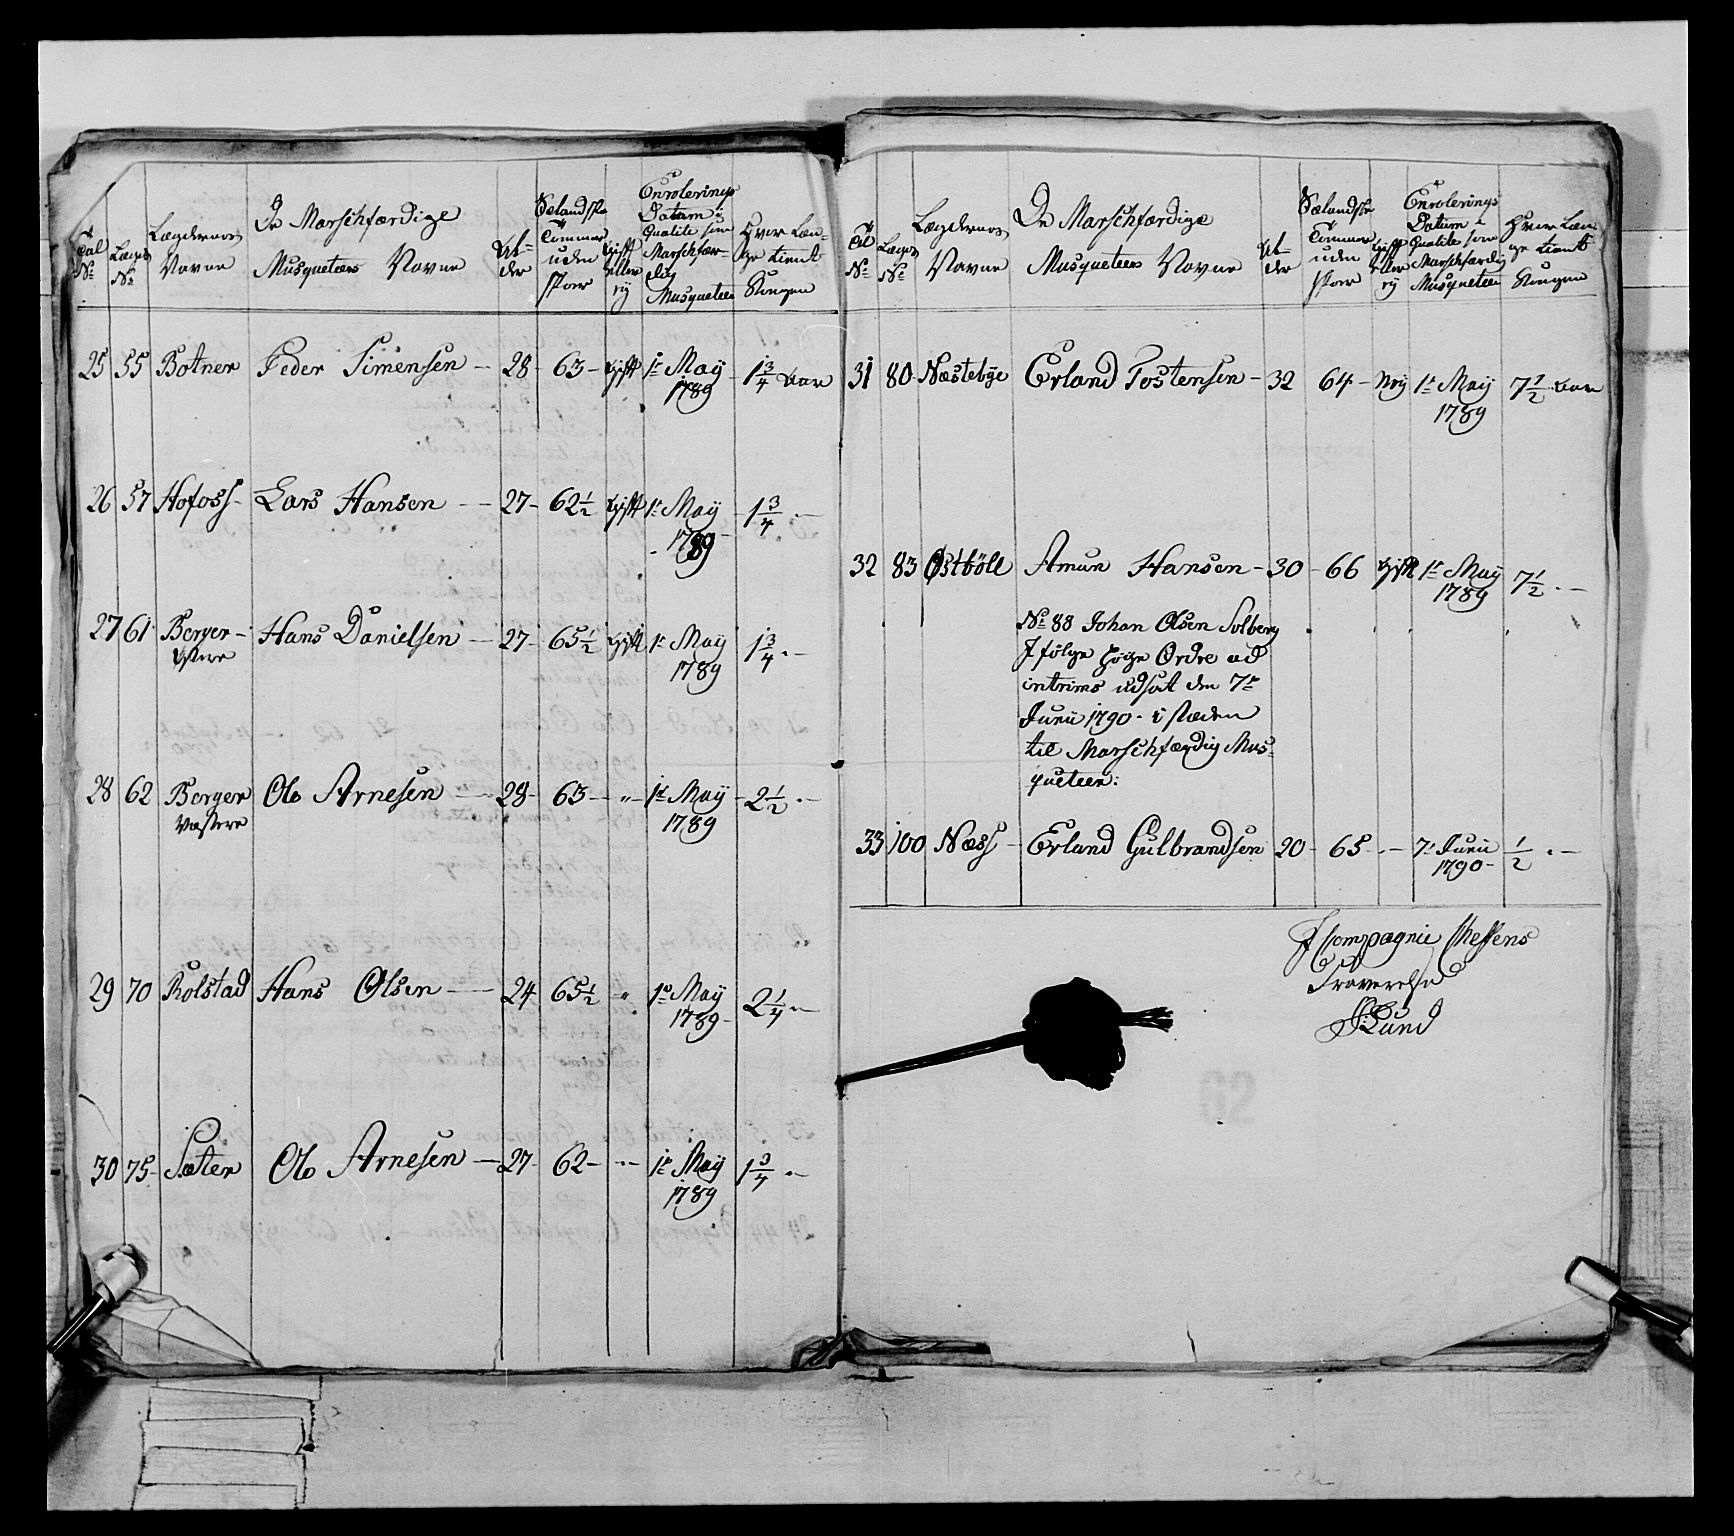 Tal No
Lægd No
Lægdernes Navne
De Marschfærdige Musqueteers Navne
Al-der
Sælandske Tommer uden Skoer
Gift eller ey
Enrolerings Datum i Qualite som Marschfærdig Musqueteer
Hvor Længe tient Kongen
25 55 Botner Peder Simensen — 28 - 63 - Gift 1e May 1789 - 1 3/4 Aar
26 57 Hofoss - Lars Hansen — 27 - 62 1/2 Gift 1e May 1789 - 1 3/4 . —
27 61 Berger - Østere Hans Danielsen — 27 - 65 1/2 Gift 1e May 1789 1 3/4 . —
28 62 Berger Vestere Ole Arnesen — 28 - 63 - " - 1e May 1789 - 2 1/2 . —
29 70 Rolstad Hans Olsen — 24 65 1/2 " 1e May 1789 - 2 1/4 " —
30 75 - Sæter Ole Arnesen — 27 - 62 - " - 1e May 1789 1 3/4 . —
Tal No
Lægd No
Lægdernes Navne
De Marschfærdige Musqueteers Navne
Al-der
Sælandske Tommer uden Skoer
Gift eller ey
Enrolerings Datum i Qualite som Marschfærdig Musqueteer
Hvor Længe tient Kongen
31 80 - Næstebye Erland Tostensen - 32 64 - Ney 1e May 1789 7 1/2 Aar
32 83 Østböll Amun Hansen - 30 - 66 Gift 1e May 1789 7 1/2 . —
No 88 Johan Olsen Solberg
I følge høye Ordre ad
intrims udsat den 7e
Junii 1790 - i stæden
til Marschfærdig Mus-
queteer:
33 100 Næss - Erland Gulbrandsen 20 - 65 - . — 7e Junii 1790 - 1/2 . —
I Compagnie Cheffens
Fraværelse
Lund